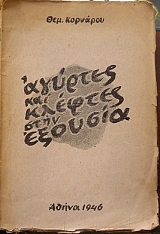 Θεμ. Κορνάρου
ἀγύρτες
και
κλέφτες
στὴν
ἐξουσία
Ἀθήνα 1946